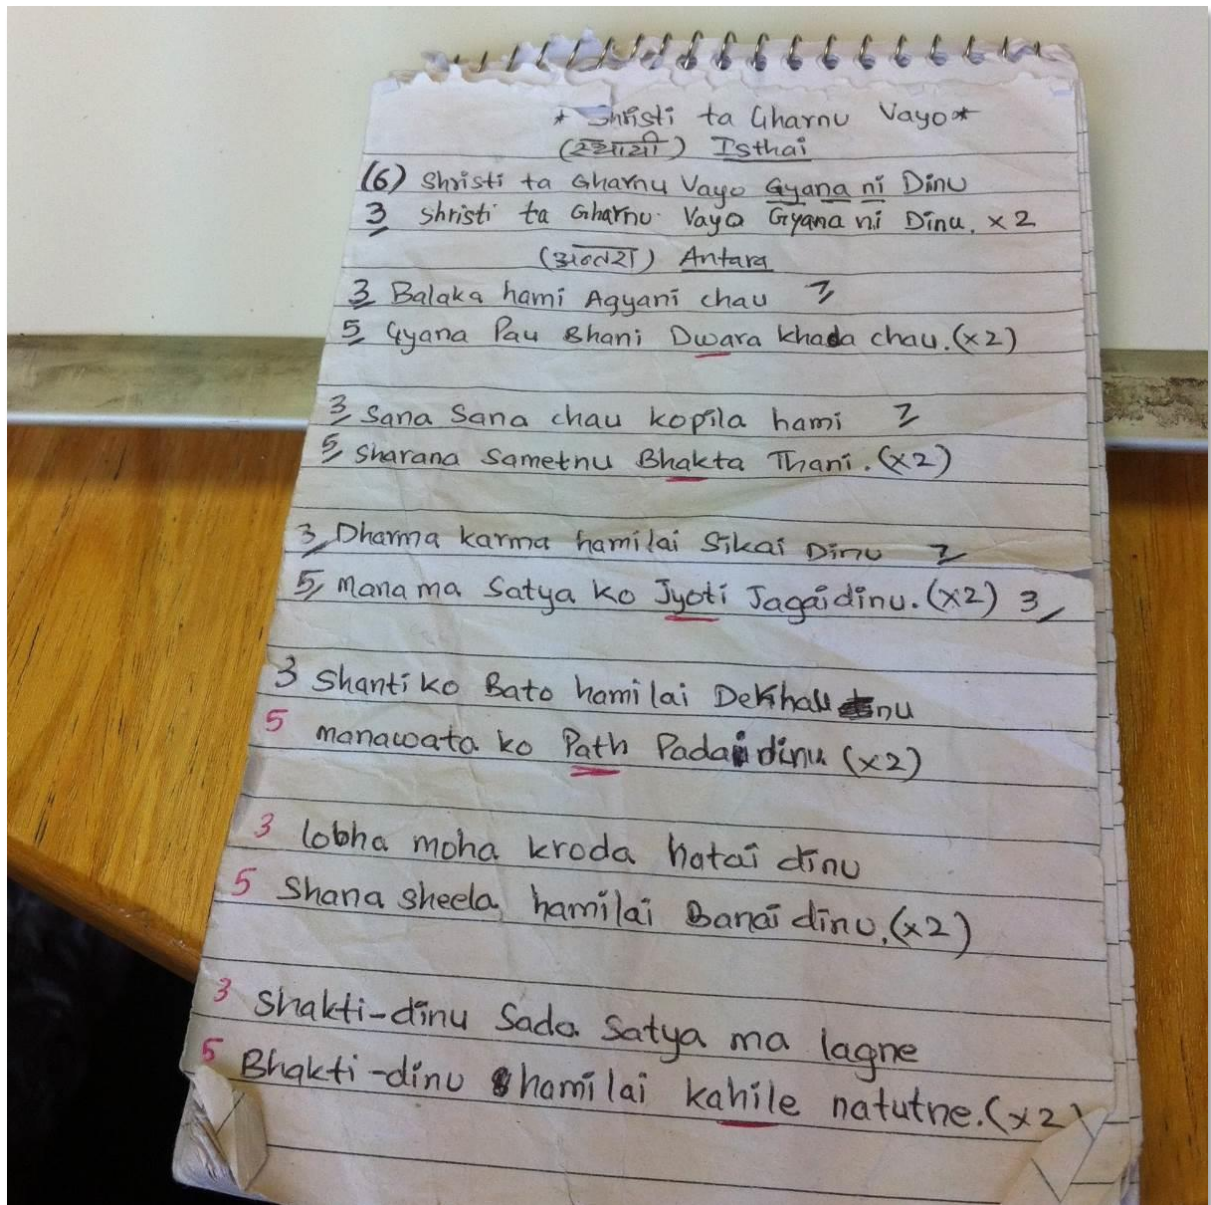 * Shristi ta Gharnu Vayo *
(स्थायी) Isthai
(6) Shristi ta Gharnu Vayo Gyana ni Dinu
3 Shristi ta Gharnu Vayo Gyana ni Dinu. x 2
(अन्तरा) Antara
3 Balaka hami Agyani chau 7
5 Gyana Pau Bhani Dwara khada chau. (x2)
3 Sana Sana chau kopila hami 7
5 Sharana Sametnu Bhakta Thani. (x2)
3 Dharma karma hamilai Sikai Dinu 7
5 mana ma Satya ko Jyoti Jagaidinu. (x2) 3
3 Shanti ko Bato hamilai Dekhau nu
5 manawata ko Path Padai dinu (x2)
3 lobha moha kroda hatai dinu
5 Shana sheela hamilai Banai dinu. (x2)
3 Shakti-dinu Sada Satya ma lagne
5 Bhakti-dinu hamilai kahile natutne. (x2)